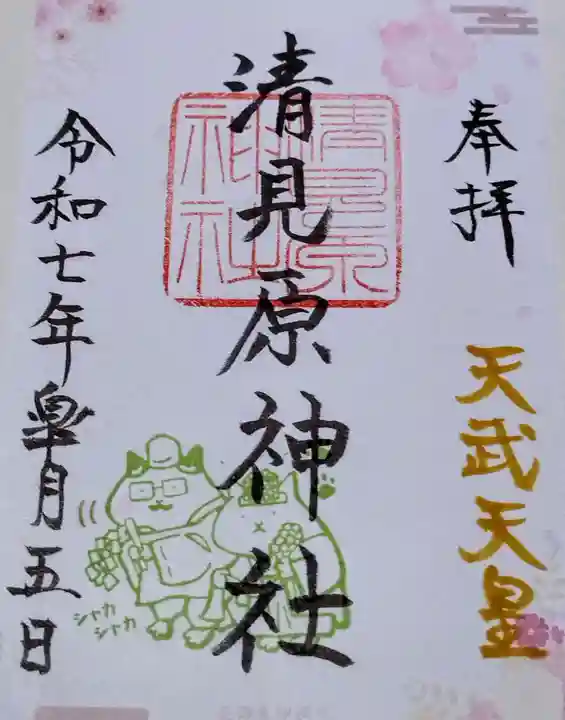 奉拝
天武天皇
清見原神社
清見原
神社
令和七年皐月五日
シャカ
シャカ